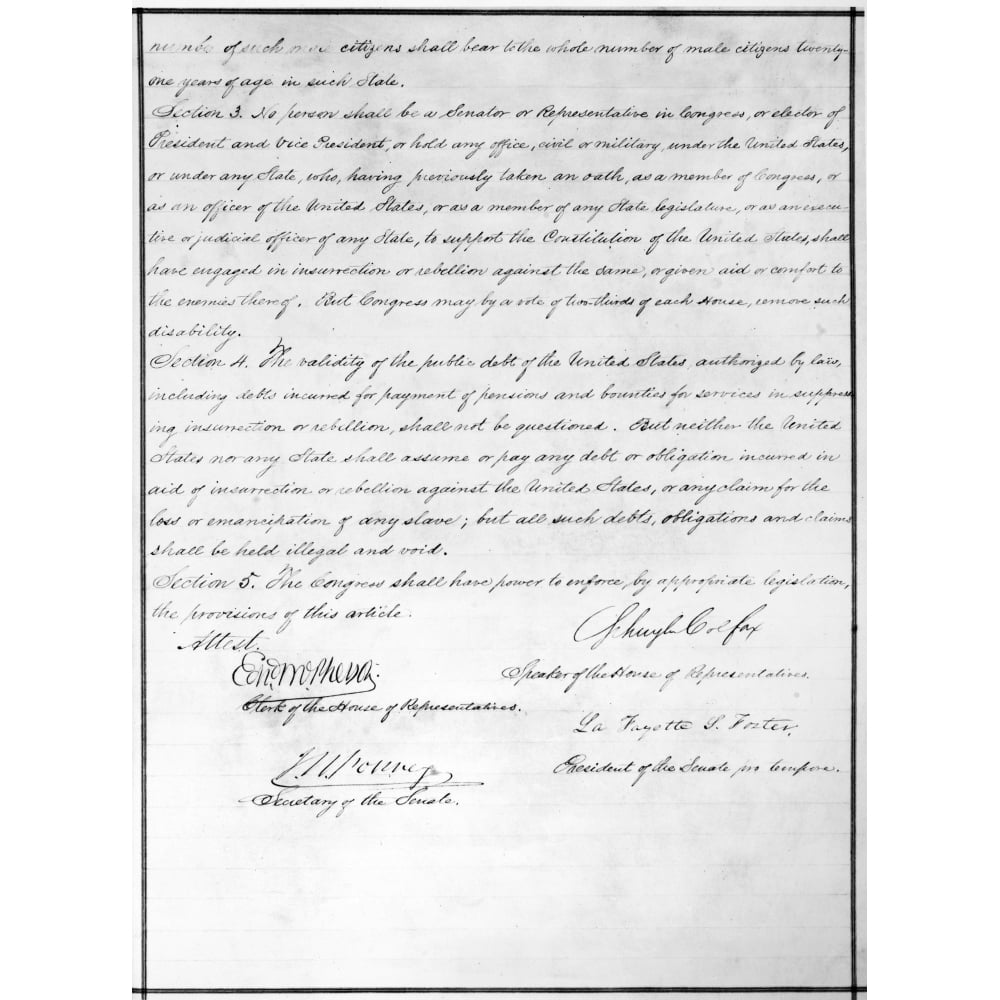 number of such male citizens shall bear to the whole number of male citizens twenty-
one years of age in such State.
Section 3. No person shall be a Senator or Representative in Congress, or elector of
President and Vice President, or hold any office, civil or military, under the United States,
or under any State, who, having previously taken an oath, as a member of Congress, or
as an officer of the United States, or as a member of any State legislature, or as an execu-
tive or judicial officer of any State, to support the Constitution of the United States, shall
have engaged in insurrection or rebellion against the same, or given aid or comfort to
the enemies thereof. But Congress may by a vote of two-thirds of each House, remove such
disability.
Section 4. The validity of the public debt of the United States, authorized by law,
including debts incurred for payment of pensions and bounties for services in suppress
ing insurrection or rebellion, shall not be questioned. But neither the United
States nor any State shall assume or pay any debt or obligation incurred in
aid of insurrection or rebellion against the United States, or any claim for the
loss or emancipation of any slave; but all such debts, obligations and claims
shall be held illegal and void.
Section 5. The Congress shall have power to enforce, by appropriate legislation,
the provisions of this article.
Schuyler Colfax
Attest.
Speaker of the House of Representatives.
Edwd McPherson.
Clerk of the House of Representatives.
La Fayette S. Foster,
President of the Senate pro tempore.
J. W. Forney
Secretary of the Senate.